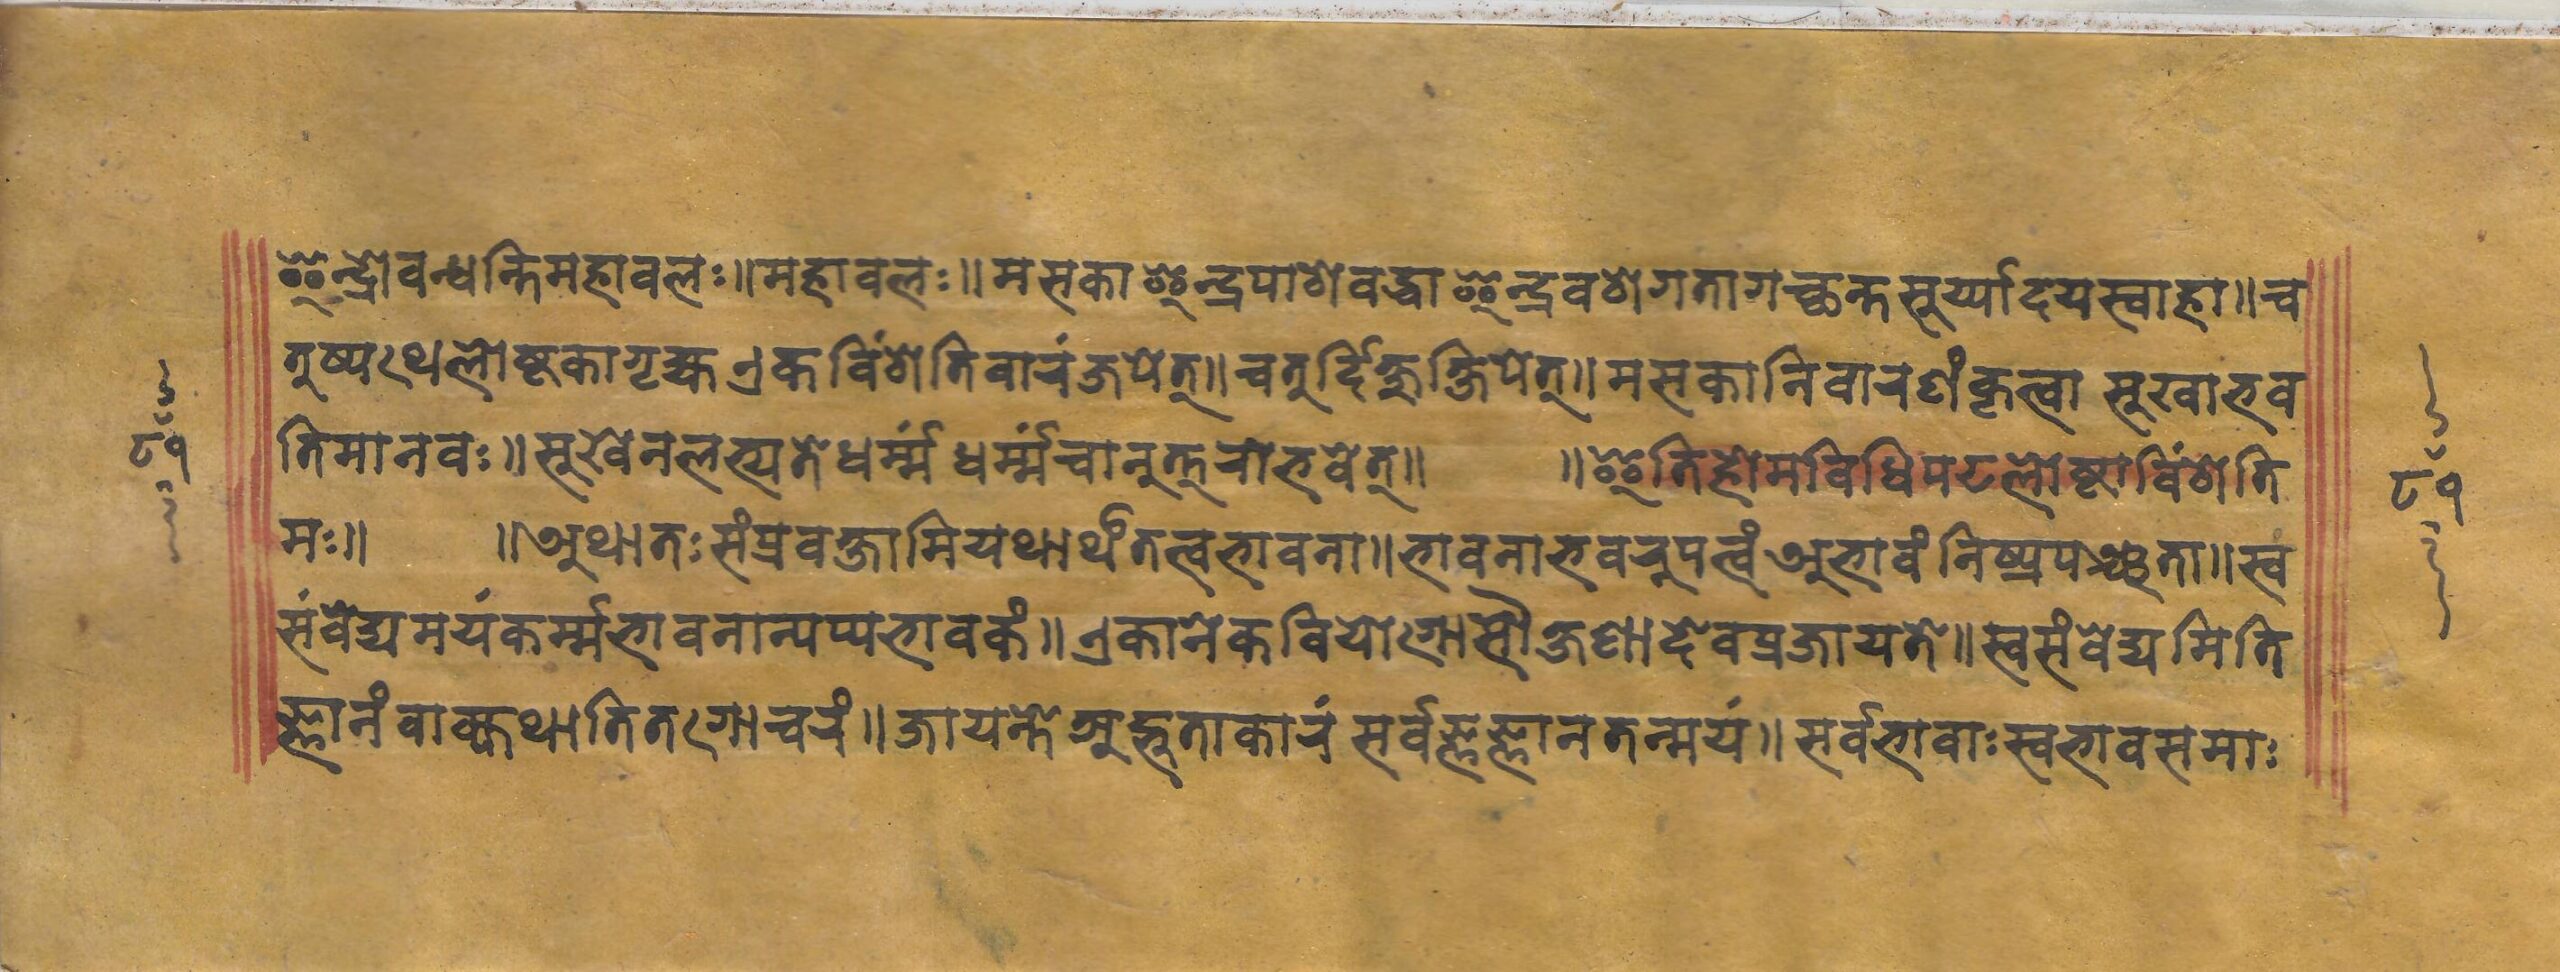 इन्द्रो वन्धन्तिमहावलः॥महावलः॥मसकाइन्द्रपाशेवद्धाइन्द्रवशेगतागच्छन्तसूर्य्यादयस्वाहा॥च
तुष्पथेलोष्टकागृह्यएकविंशेतिवारंजपेत्॥चतुर्दिक्षुक्षिपेत्॥मसकानिवारणंकृत्वा सूखाभव
तिमानवः॥सूखेनलभ्यतेधर्म्मं धर्म्मंचानुत्तरोभवेत्॥ ॥इतिहोमविधिपटलोष्टाविंशेति
मः॥ ॥अथातःसंप्रवक्षामियथार्थंतत्वभावना॥भावनाभवरूपत्वंअभावंनिष्प्रपञ्चता॥स्व
संवेद्यमयंकर्म्मभावनान्यप्यभावकं॥एकानेकवियोगोसौक्षणादेवप्रजायते॥स्वसंवेद्यमिति
ज्ञानंवाक्कथातितगोचरं॥जायन्तेअद्भुताकारंसर्वज्ञज्ञानतन्मयं॥सर्वभावाःस्वभावसमाः
८१
८१